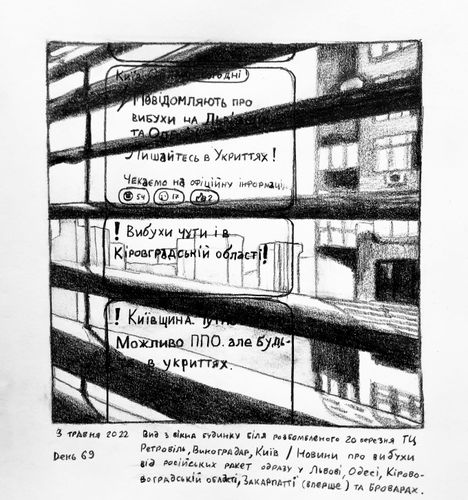 Київ
Повідомляють про
вибухи на
та
Лишайтесь в Укриттях!
Чекаємо на офіційну
54 17 2
! Вибухи чути і в
Кіровградській області!
! Київщина.
Можливо ППО. але будь-
в укриттях.
3 травня 2022 Вид з вікна будинку біля розбомбленого 20 березня ТЦ
День 69
Ретровіль, Виноградар, Київ / Новини про вибухи
від російських ракет одразу у Львові, Одесі, Кірово-
воградській області, Закарпатті (вперше) та Броварах.